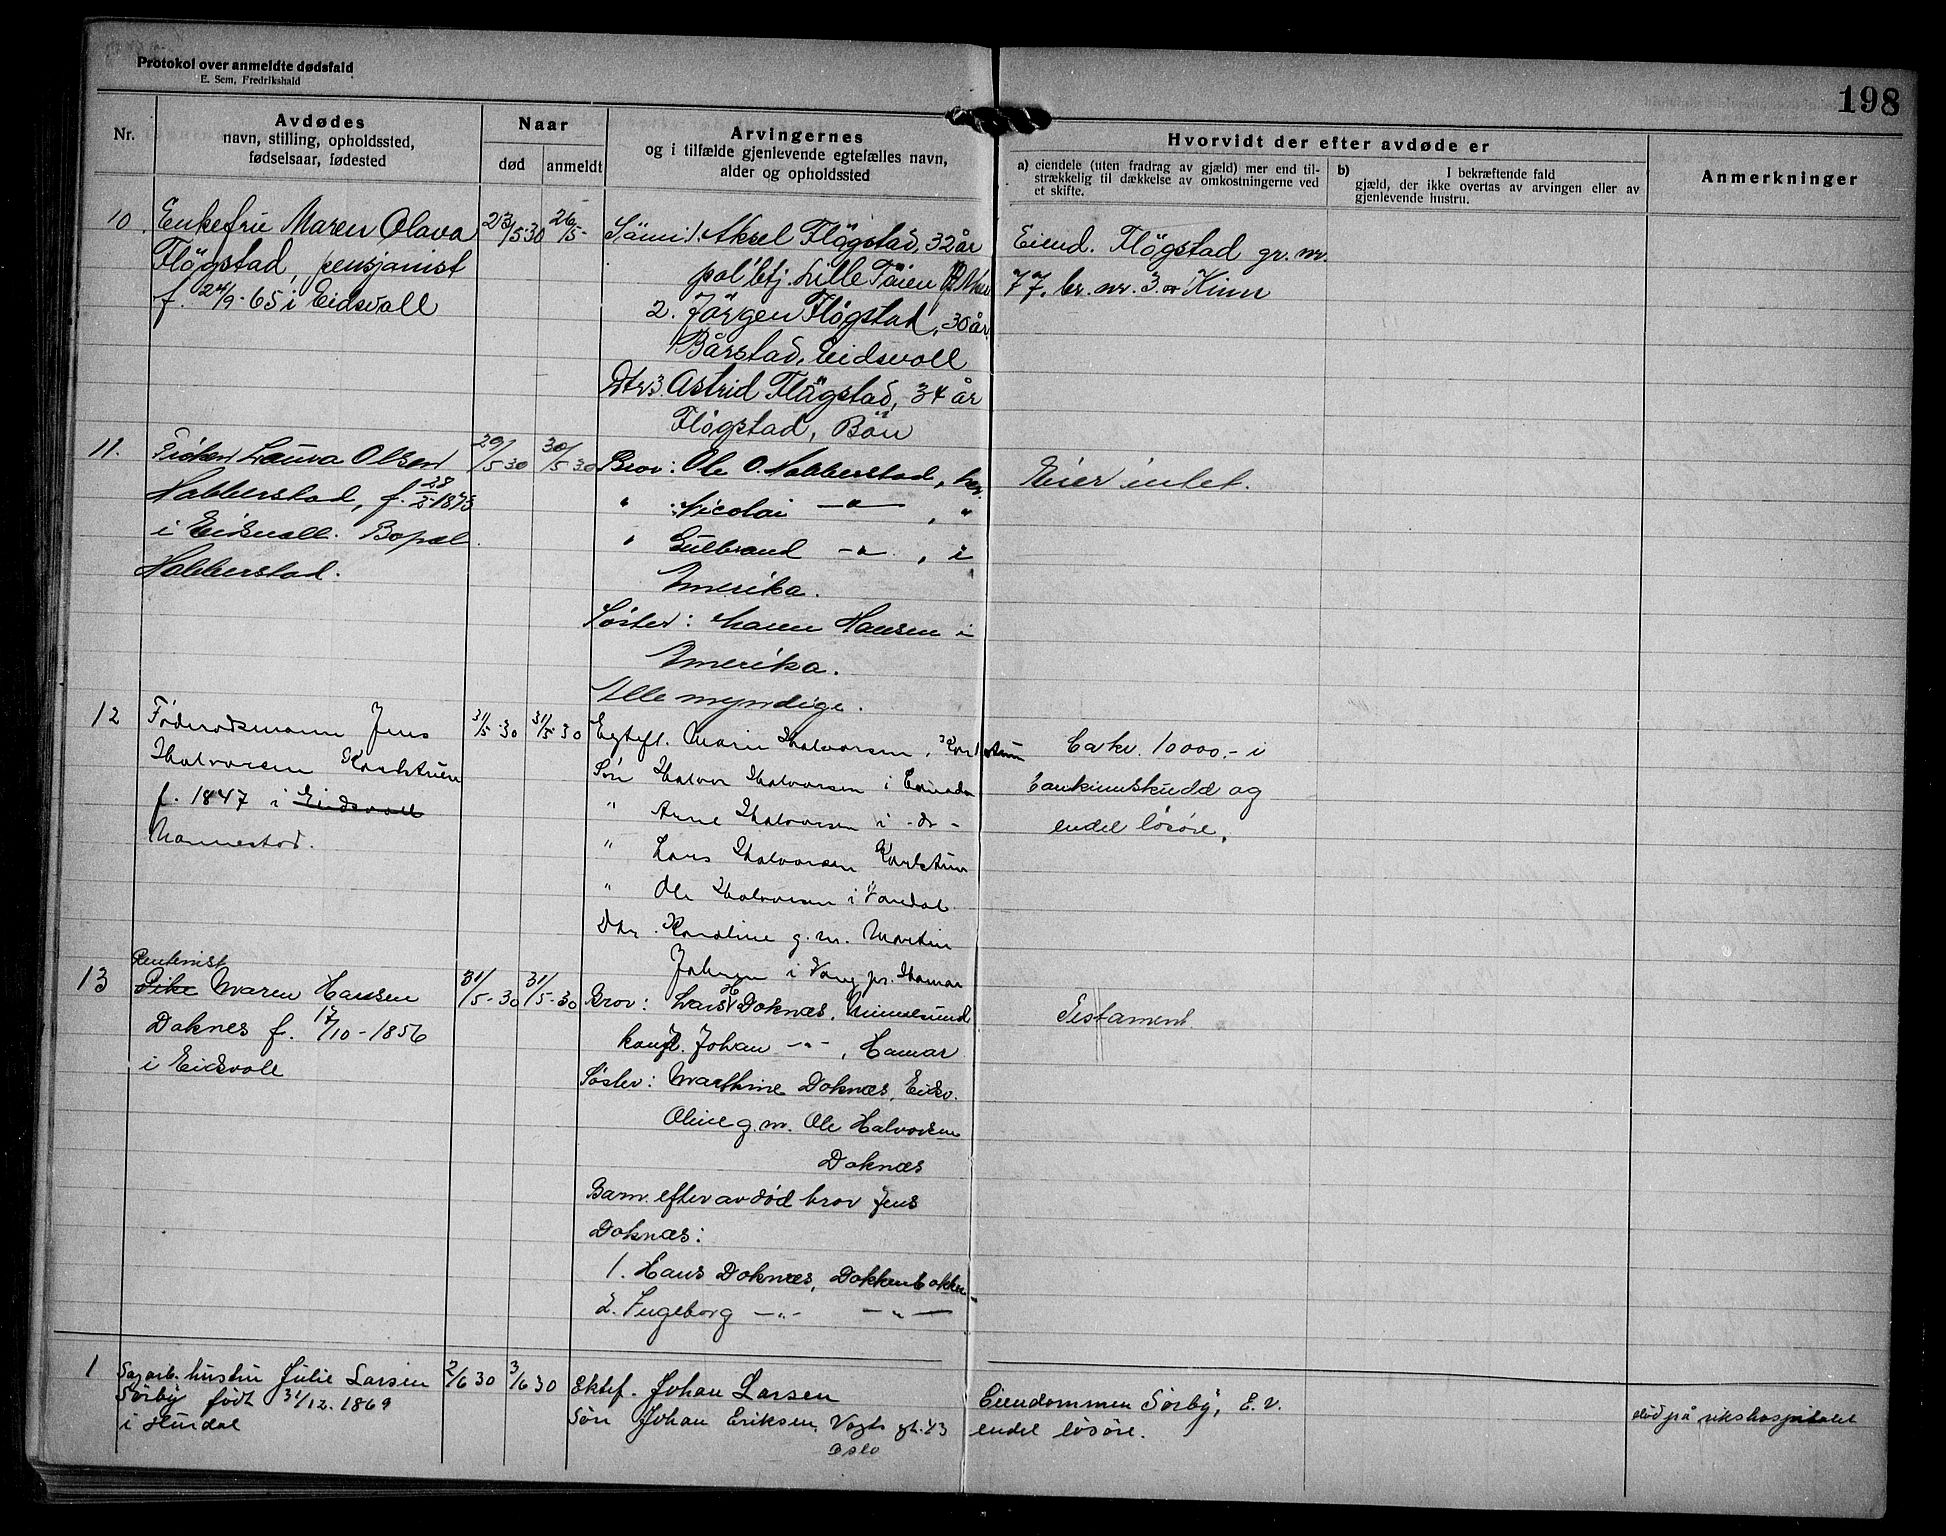 Protokol over anmeldte dødsfald
E. Sem, Fredrikshald
198
Nr.
Avdødes
navn, stilling, opholdssted,
fødselsaar, fødested
Naar
død
anmeldt
Arvingernes
og i tilfælde gjenlevende egtefælles navn,
alder og opholdssted
Hvorvidt der efter avdøde er
a) eiendele (uten fradrag av gjæld) mer end til-
strækkelig til dækkelse av omkostningerne ved
et skifte.
b) I bekræftende fald
gjæld, der ikke overtas av arvingen eller av
gjenlevende hustru.
Anmerkninger
10. Enkefru Maren Olava
Flögstad, pensjonist
f. 24/9-65 i Eidsvoll
23/5-30
26/5-
1. Aksel Flögstad, 32 år
pol.btj. Lille Töien
2. Jörgen Flögstad, 30 år
Bårstad, Eidsvoll
Dtr 3. Astrid Flögstad, 34 år
Flögstad, Bön
Eiend. Flögstad gr. nr.
77, br. nr. 3
11. Frøken Laura Olsen
Habberstad, f. 28/2-1873
i Eidsvoll. Bopæl
Habberstad.
29/5 30
30/5 30
Bror: Ole O. Habberstad, her.
" Nicolai —"— , "
" Gulbrand -"- , i
Amerika.
Søster: Maren Hansen i
Amerika.
Alle myndige.
Eier intet.
12 Føderådsmann Jens
Halvorsen Karlstuen
f. 1847 i Eidsvoll
Nannestad.
31/5-30
31/5 30
Egtef. Marie Halvorsen, Karlstuen
Søn Halvor Halvorsen i
" Arne Halvorsen i -do-
" Lars Halvorsen Karlstuen
" Ole Halvorsen i
Dtr. Karoline g. m. Martin
Johnsen i Vang pr. Hamar
Ca kr. 10000.- i
bankinnskudd og
endel løsøre.
13 Rentenist
Pike Maren Hansen
Doknes f. 17/10-1856
i Eidsvoll
31/5-30
31/5-30
Bror: Lars H Doknæs, Minnesund
Johan -"- , Hamar
Søster: Marthine Doknæs, Eidsv.
Oline g.m. Ole Halvorsen
Doknæs
Barn efter avdød bror Jens
Doknæs:
1. Hans Doknæs, Dokkenbakken
2. Ingeborg -"- —"—
Testament.
1 Sagarb. hustru Julie Larsen
Sørby født 31/12. 1869
i Hurdal
2/6 30
3/6 30
Ektef. Johan Larsen
Søn Johan Eriksen, Vogts gt. 43
Oslo
Eiendommen Sørby, E. V.
endel løsøre.
død på rikshospitalet